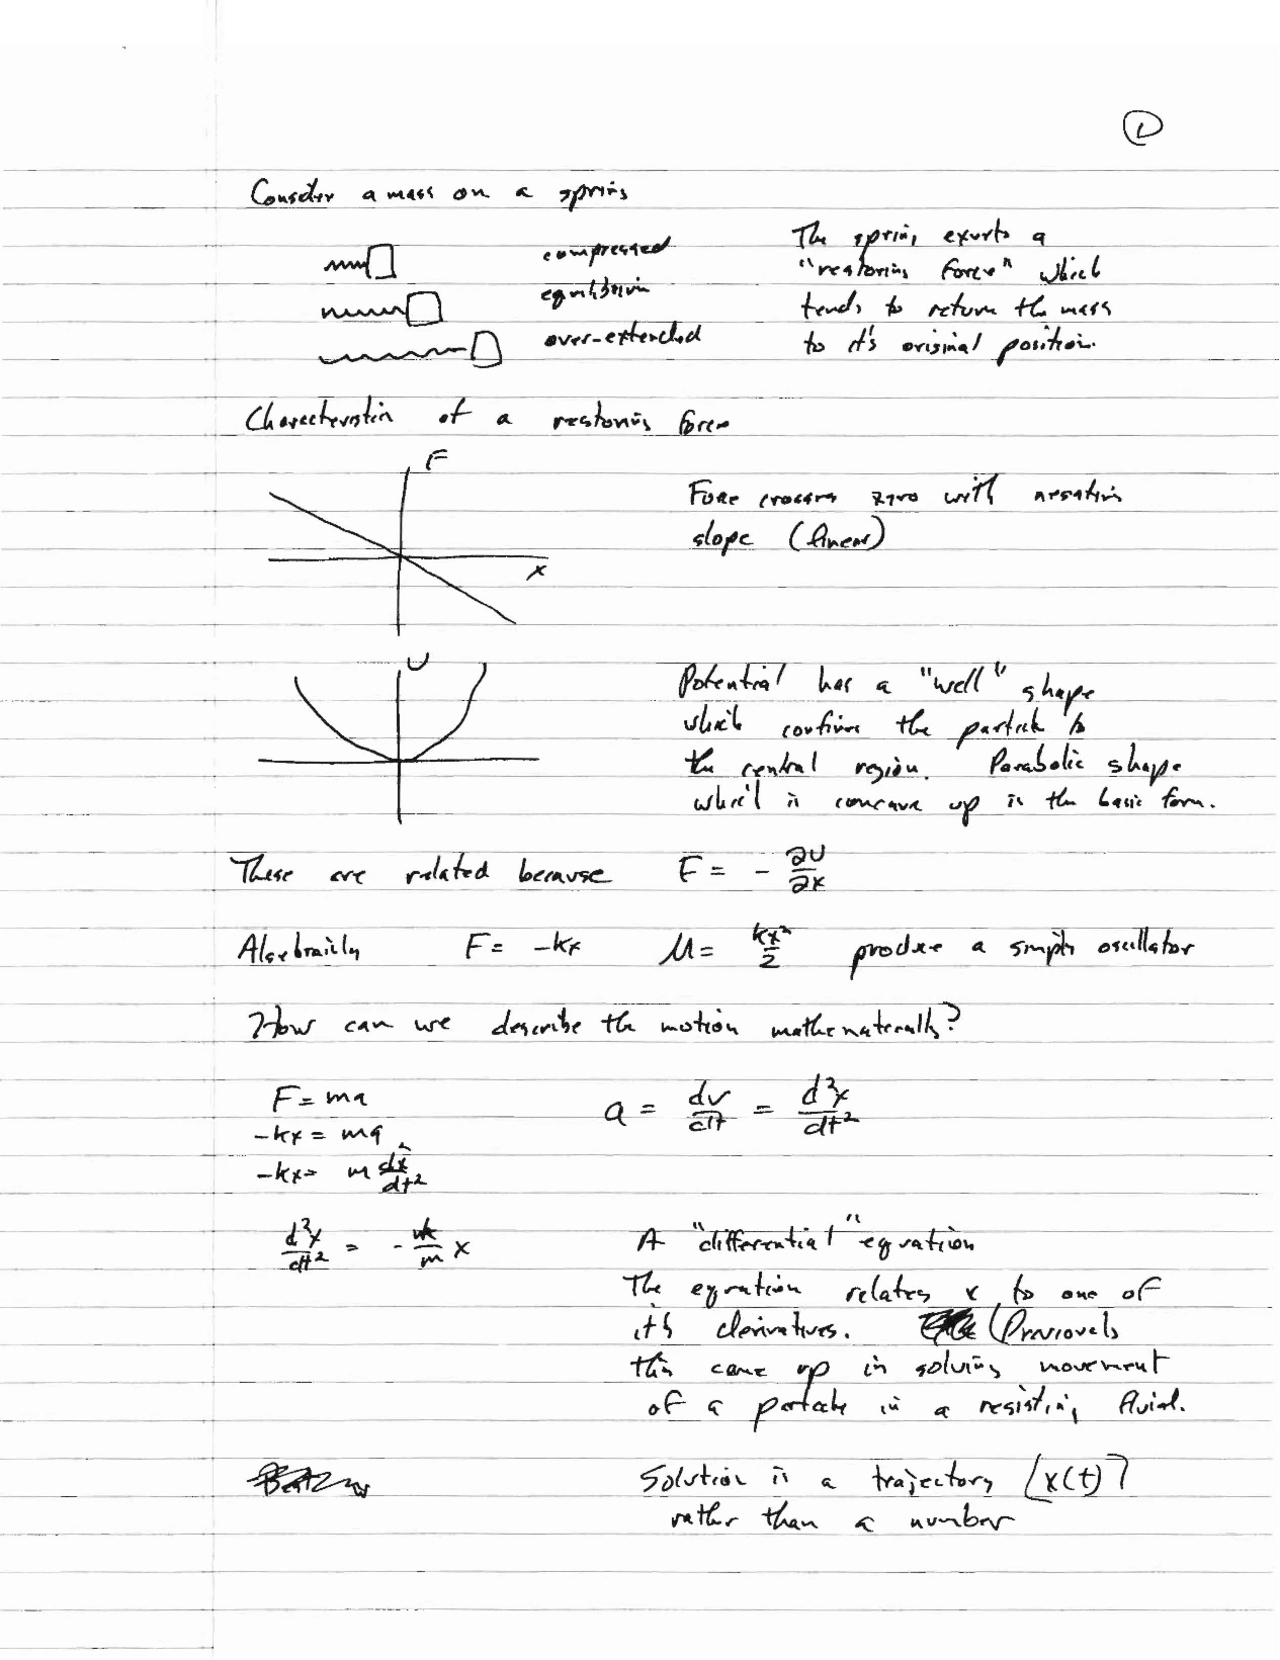 1
Consider a mass on a spring
compressed
equilibrium
over-extended
The spring exerts a
"restoring force" which
tends to return the mass
to it's original position.
Characteristic of a restoring force
F
x
Force crosses zero with negative
slope (linear)
U
Potential has a "well" shape
which confines the particle to
the central region. Parabolic shape
which is concave up is the basic form.
These are related because F = - ∂U/∂x
Algebraically F = -kx U = kx²/2 produce a simple oscillator
How can we describe the motion mathematically?
F = ma
a = dv/dt = d²x/dt²
-kx = ma
-kx = m d²x/dt²
d²x/dt² = - k/m x
A "differential" equation
The equation relates x to one of
it's derivatives. (Previously
this came up in solving movement
of a particle in a resisting fluid.
Solution is a trajectory [x(t)]
rather than a number